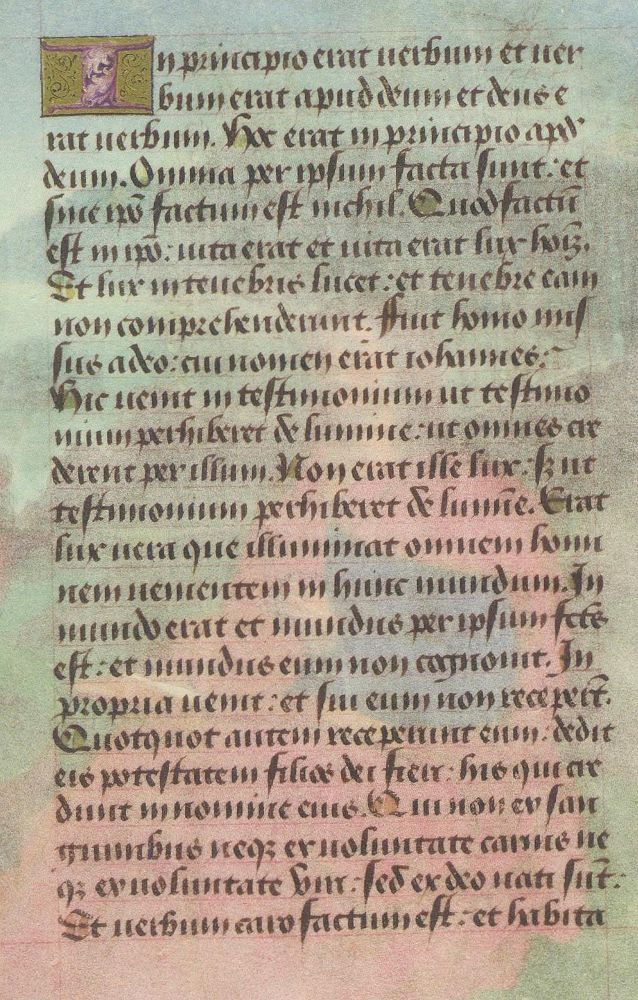 In principio erat uerbum et uer
bum erat apud deum et deus e
rat uerbum. Hoc erat in principio apd̕
deum. Omnia per ipsum facta sunt: et
sine ip̅o factum est nichil. Quod factū
est in ip̅o: uita erat et uita erat lux hoīʒ.
Et lux in tenebris lucet: et tenebre eam
non comprehenderunt. Fuit homo mis
sus a deo: cui nomen erat iohannes:
Hic uenit in testimonium ut testimo
nium perhiberet de lumine: ut omnes cre
derent per illum. Non erat ille lux: sʒ ut
testimonium perhiberet de lumīe. Erat
lux uera que illuminat omnem homi
nem uenientem in hunc mundum. In
mundo erat et mundus per ipsum fc̅s
est: et mundus eum non cognouit. In
propria uenit: et sui eum non recepert̅.
Quotquot autem receperunt eum: dedit
eis potestatem filios dei fieri: his qui cre
dunt in nomine eius. Qui non ex san
guinibus neqʒ ex uoluntate carnis ne
qʒ ex uoluntate viri: sed ex deo nati sūt:
Et uerbum caro factum est: et habita